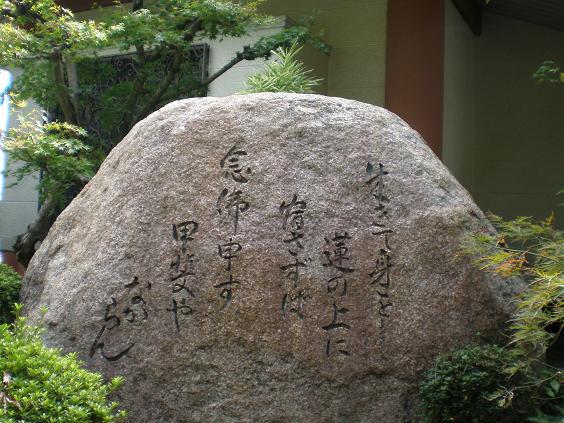 生きて身を
蓮の上に
宿さずば
念佛申す
甲斐や
なからん